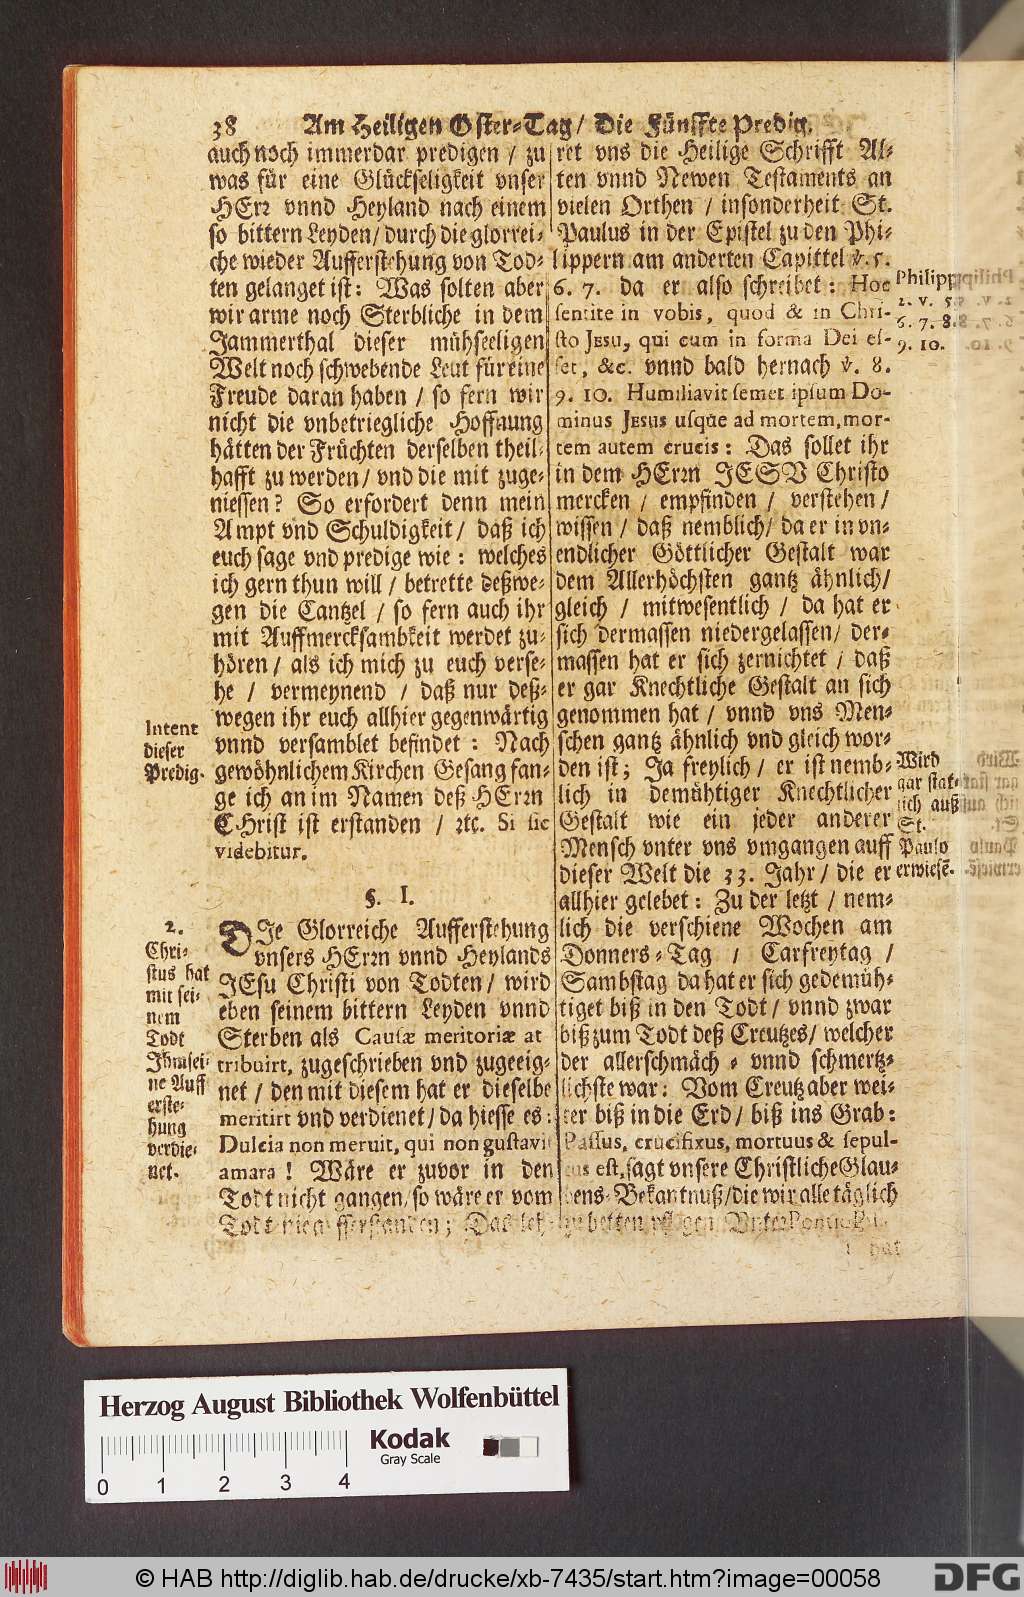 38 Am Heiligen Oster-Tag/ Die Fünffte Predig.
auch noch immerdar predigen / zu
was für eine Glückseligkeit vnser
HErr vnnd Heyland nach einem
so bittern Leyden/ durch die glorrei-
che wieder Aufferstehung von Tod-
ten gelanget ist: Was solten aber
wir arme noch Sterbliche in dem
Jammerthal dieser mühseeligen
Welt noch schwebende Leut für eine
Freude daran haben / so fern wir
nicht die vnbetriegliche Hoffnung
hätten der Früchten derselben theil-
hafft zu werden/ vnd die mit zuge-
niessen? So erfordert denn mein
Ampt vnd Schuldigkeit/ daß ich
euch sage vnd predige wie: welches
ich gern thun will / betrette deßwe-
gen die Cantzel / so fern auch ihr
mit Auffmercksambkeit werdet zu-
hören / als ich mich zu euch verse-
he / vermeynend / daß nur deß-
wegen ihr euch allhier gegenwärtig
vnnd versamblet befindet: Nach
gewöhnlichem Kirchen Gesang fan-
ge ich an im Namen deß HErrn
CHrist ist erstanden / etc. Si sic
videbitur.
Intent
dieser
Predig.
§. I.
DIe Glorreiche Aufferstehung
vnsers HErrn vnnd Heylands
JEsu Christi von Todten/ wird
eben seinem bittern Leyden vnnd
Sterben als Causæ meritoriæ at
tribuirt, zugeschrieben vnd zugeeig-
net / den mit diesem hat er dieselbe
meritirt vnd verdienet/ da hiesse es:
Dulcia non meruit, qui non gustavit
amara! Wäre er zuvor in den
Todt nicht gangen, so wäre er vom
Todt nie
2.
Chri-
stus hat
mit sei-
nem
Todt
Jhm sei-
ne Auff
erste-
hung
verdie-
net.
ret vns die Heilige Schrifft Al-
ten vnnd Newen Testaments an
vielen Orthen / insonderheit St.
Paulus in der Epistel zu den Phi-
lippern am anderten Capittel v. 5.
6. 7. da er also schreibet: Hoc
sentite in vobis, quod & in Chri-
sto Jesu, qui cum in forma Dei es-
set, &c. vnnd bald hernach v. 8.
9. 10. Humiliavit semet ipsum Do-
minus Jesus usque ad mortem, mor-
tem autem crucis: Das sollet ihr
in dem HErrn JESV Christo
mercken / empfinden / verstehen/
wissen / daß nemblich/ da er in vn-
endlicher Göttlicher Gestalt war
dem Allerhöchsten gantz ähnlich/
gleich / mitwesentlich / da hat er
sich dermassen niedergelassen/ der-
massen hat er sich zernichtet / daß
er gar Knechtliche Gestalt an sich
genommen hat / vnnd vns Men-
schen gantz ähnlich vnd gleich wor-
den ist; Ja freylich / er ist nemb-
lich in demühtiger Knechtlicher
Gestalt wie ein jeder anderer
Mensch vnter vns vmgangen auff
dieser Welt die 33. Jahr / die er
allhier gelebet: Zu der letzt / nem-
lich die verschiene Wochen am
Donners-Tag / Carfreytag /
Sambstag da hat er sich gedemüh-
tiget biß in den Todt / vnnd zwar
biß zum Todt deß Creutzes/ welcher
der allerschmäch- vnnd schmertz-
lichste war: Vom Creutz aber wei-
ter biß in die Erd/ biß ins Grab:
Passus, crucifixus, mortuus & sepul-
tus est, sagt vnsere Christliche Glau-
bens-Bekantnuß/ die wir alle täglich
zu betten pflegen
hat
Philipp.
2. v. 5.
6. 7. 8.
9. 10.
Wird
gar stat-
lich auß
St.
Paulo
erwiesē.
Herzog August Bibliothek Wolfenbüttel
Kodak
Gray Scale
0 1 2 3 4
© HAB http://diglib.hab.de/drucke/xb-7435/start.htm?image=00058
DFG